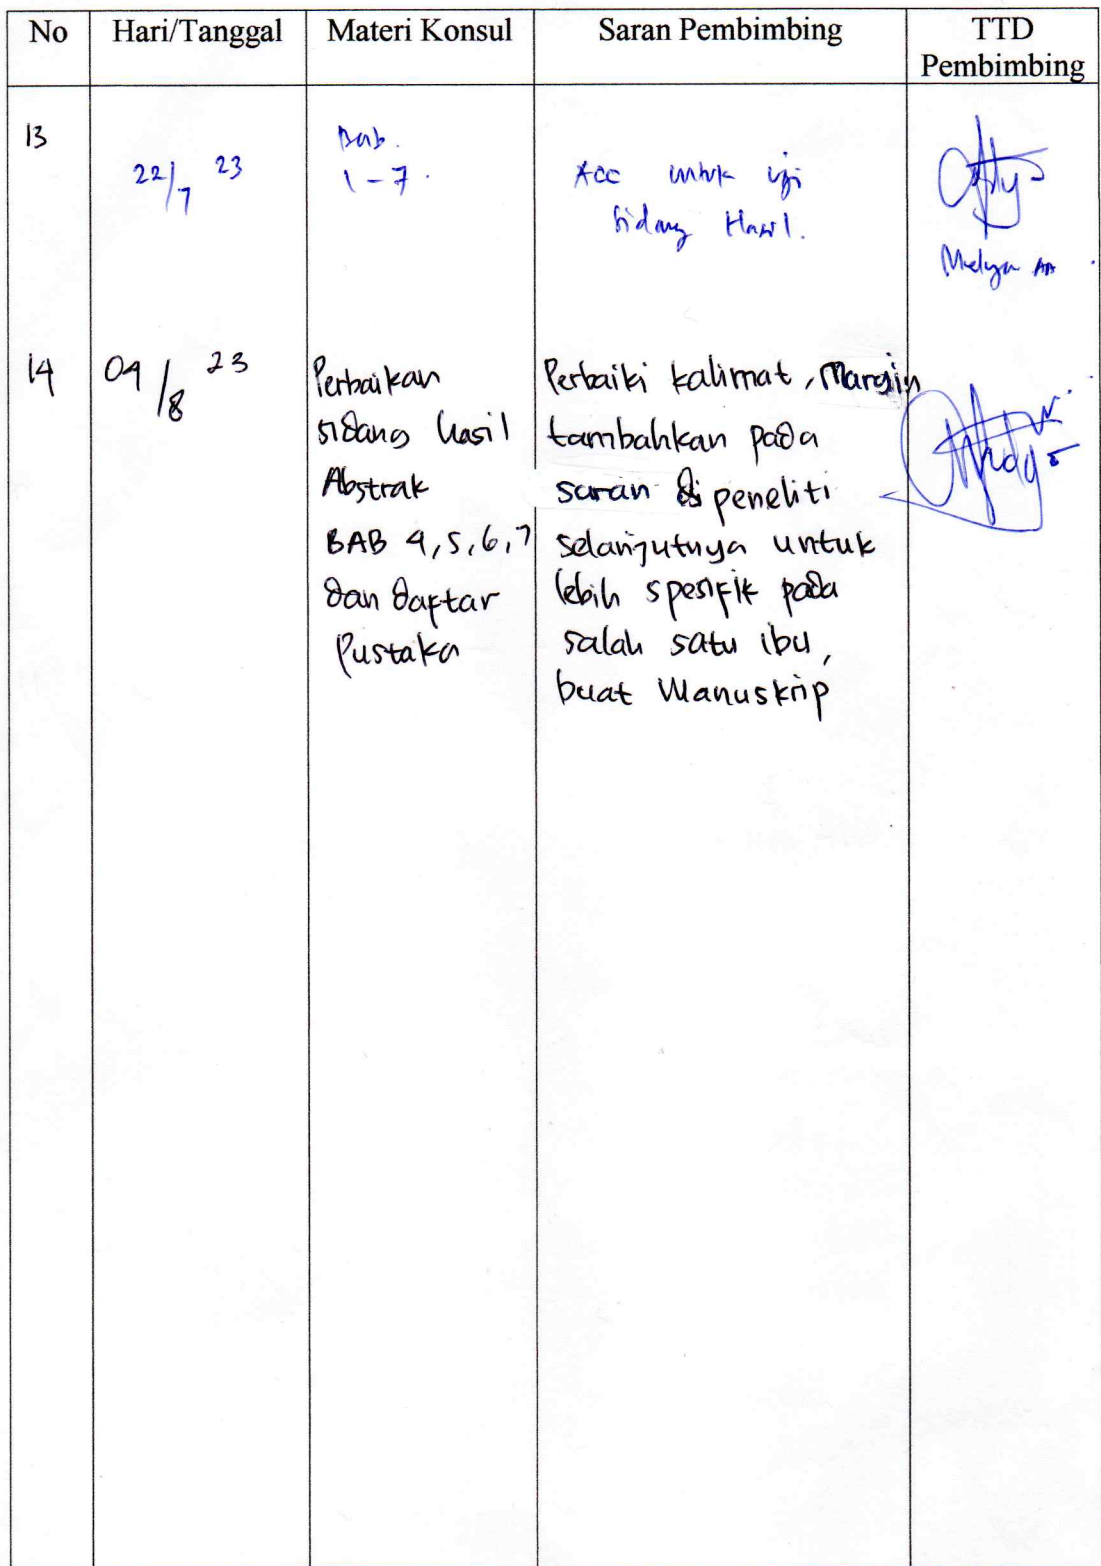 No Hari/Tanggal Materi Konsul Saran Pembimbing TTD
Pembimbing
13
22/7 23
Bab.
1 - 7.
Acc untuk uji
Sidang Hasil.
14
04/8 23
Perbaikan
sidang hasil
Abstrak
BAB 4, 5, 6, 7
dan daftar
Pustaka
Perbaiki kalimat, Margin
tambahkan pada
saran di peneliti
selanjutnya untuk
lebih spesifik pada
salah satu ibu,
buat Manuskrip